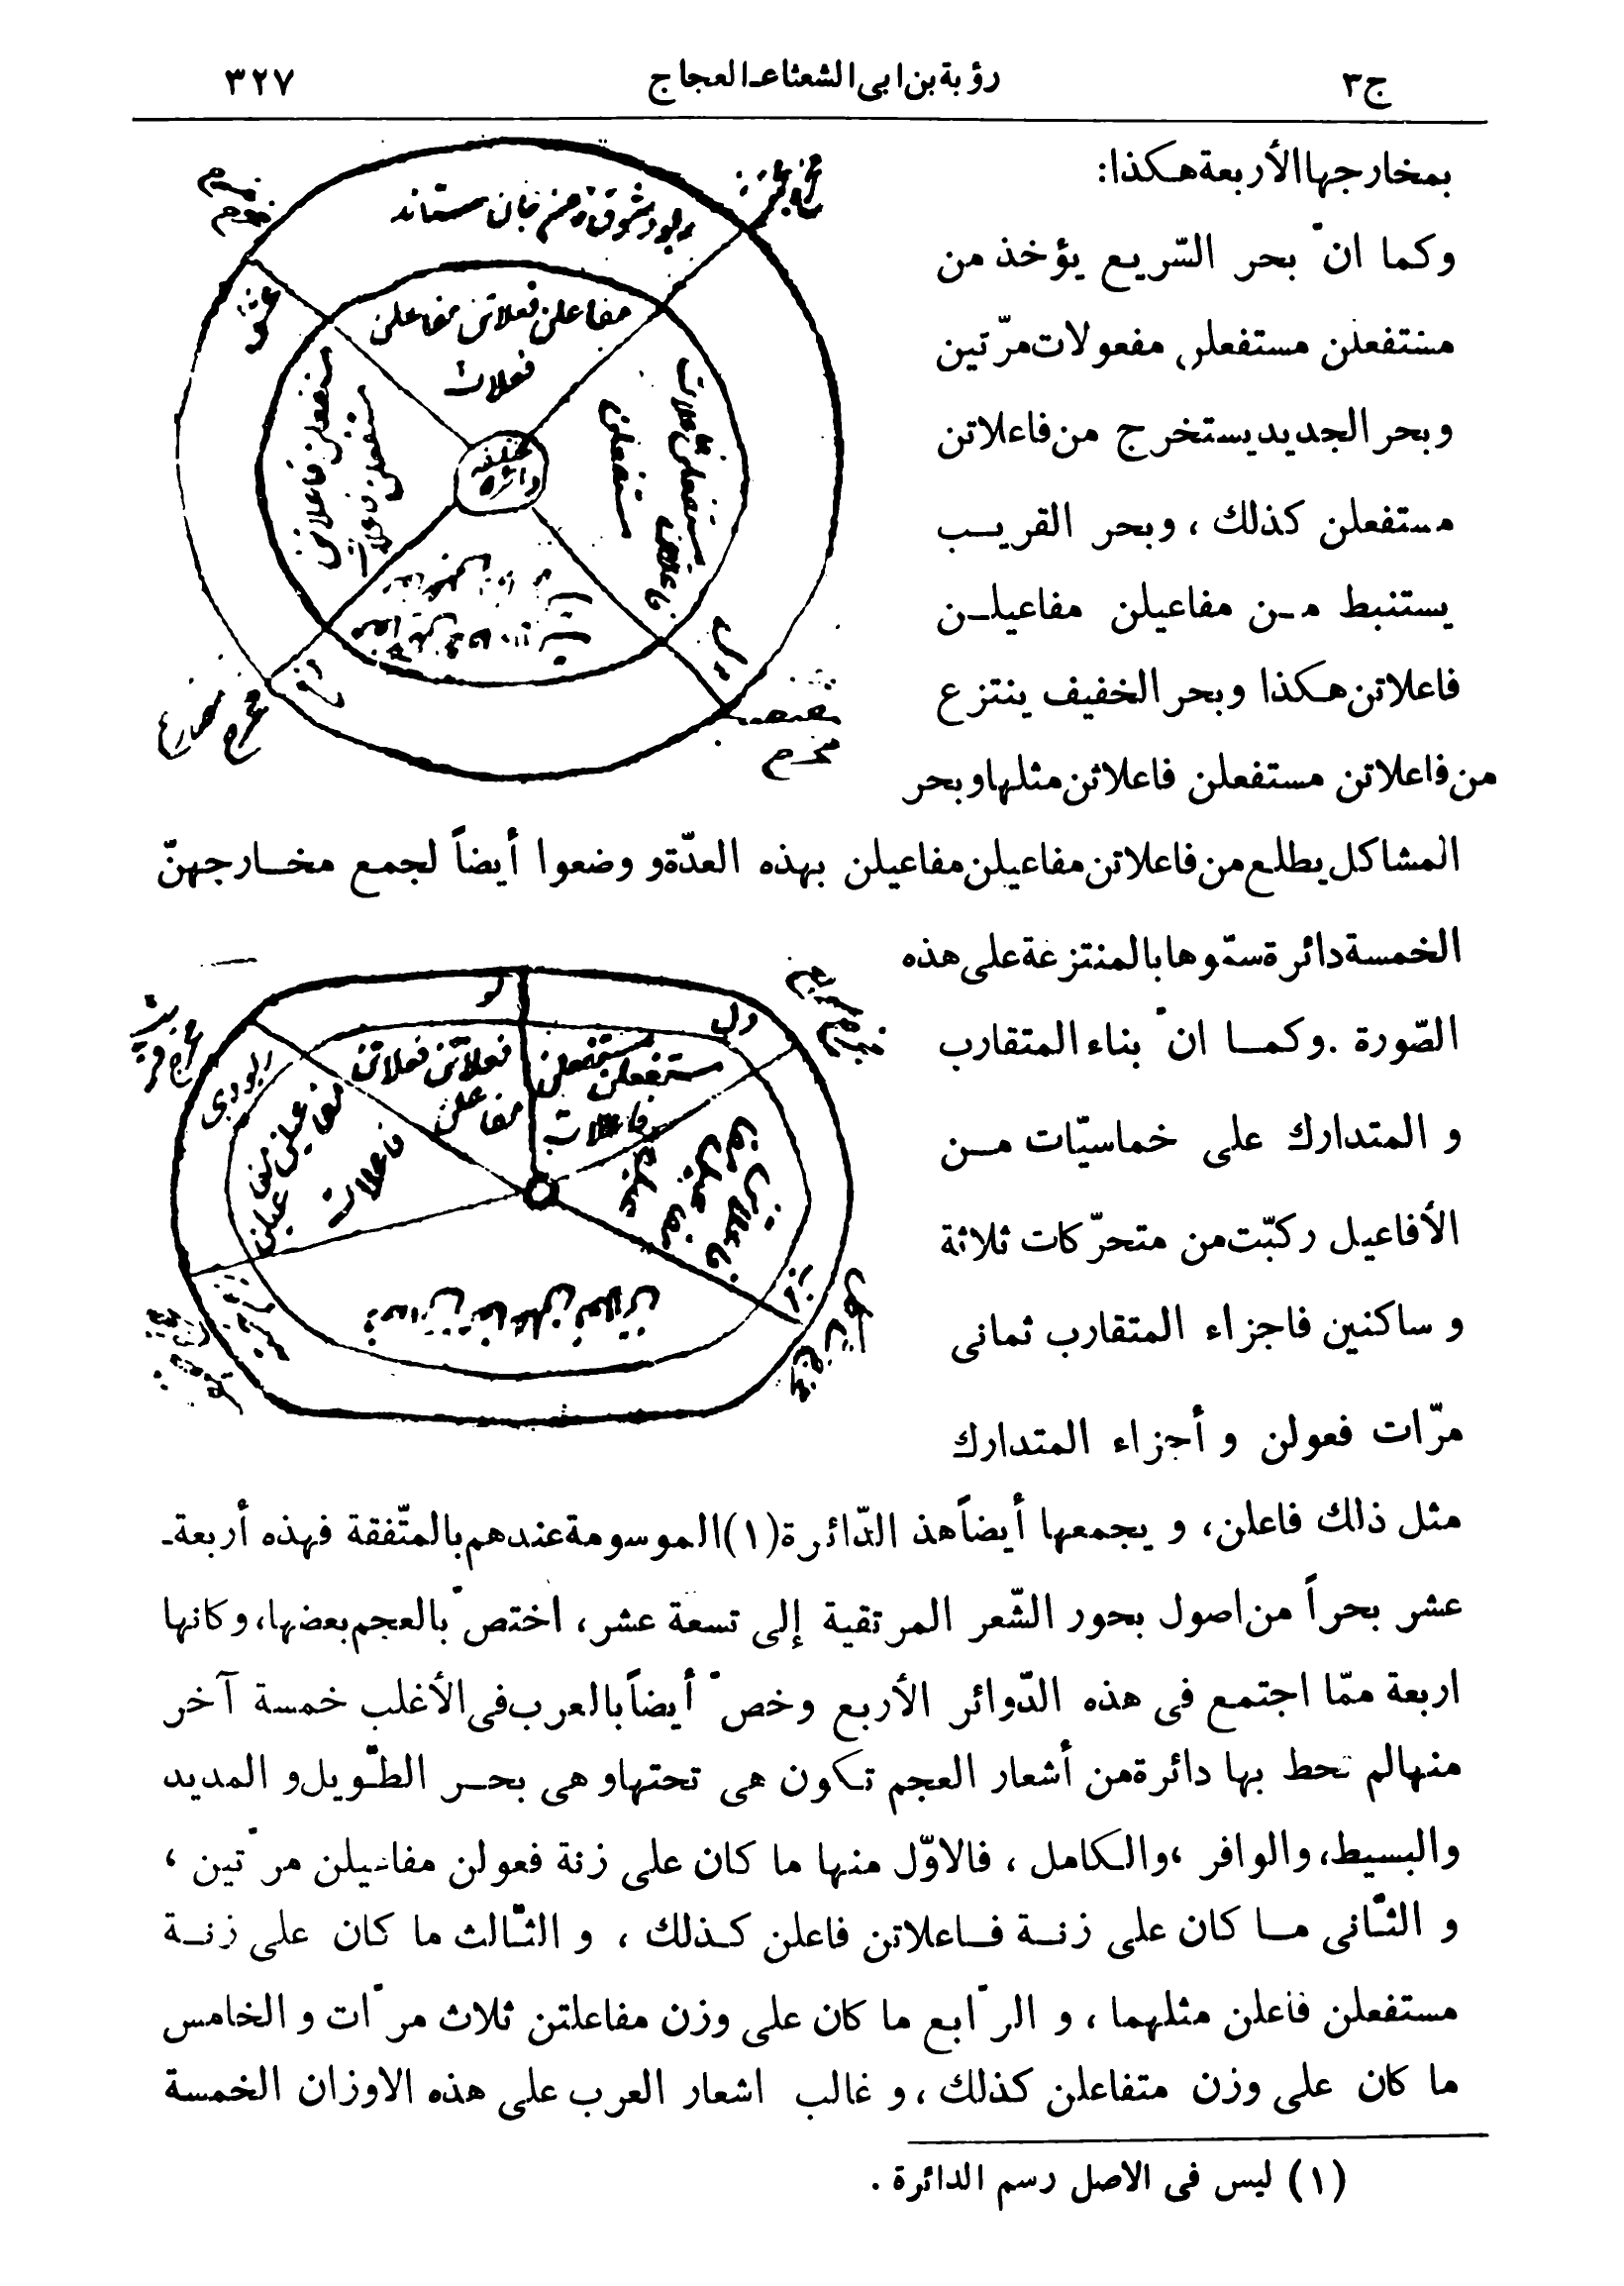 ج٣ رؤبة بن ابى الشعثاء ـ العجاج ٣٢٧
بمخارجها الأربعة هكذا:
وكما انّ بحر السّريع يؤخذ من
مستفعلن مستفعلن مفعولات مرّتين
وبحر الجديد يستخرج من فاعلاتن
مستفعلن كذلك ، وبحر القريب
يستنبط من مفاعيلن مفاعيلن
فاعلاتن هكذا وبحر الخفيف ينتزع
من فاعلاتن مستفعلن فاعلاتن مثلها وبحر
المشاكل يطلع من فاعلاتن مفاعيلن مفاعيلن بهذه العدّة و وضعوا أيضاً لجمع مخارجهنّ
الخمسة دائرة سمّوها بالمنتزعة على هذه
الصّورة . وكما انّ بناء المتقارب
و المتدارك على خماسيّات من
الأفاعيل ركبّت من متحرّكات ثلاثة
و ساكنين فاجزاء المتقارب ثمانى
مرّات فعولن و أجزاء المتدارك
مثل ذلك فاعلن، و يجمعها أيضاً هذ الدّائرة (١) الموسومة عندهم بالمتّفقة فهذه أربعة ـ
عشر بحراً من اصول بحور الشّعر المرتقية إلى تسعة عشر، اختصّ بالعجم بعضها، وكانها
اربعة ممّا اجتمع فى هذه الدّوائر الأربع وخصّ أيضاً بالعرب فى الأغلب خمسة آخر
منها لم تحط بها دائرة من أشعار العجم تكون هى تحتها و هى بحر الطّويل و المديد
والبسيط، والوافر ،والكامل ، فالاوّل منها ما كان على زنة فعولن مفاعيلن مرّتين ،
و الثّانى ما كان على زنة فاعلاتن فاعلن كذلك ، و الثّالث ما كان على زنة
مستفعلن فاعلن مثلهما ، و الرّابع ما كان على وزن مفاعلتن ثلاث مرّات و الخامس
ما كان على وزن متفاعلن كذلك ، و غالب اشعار العرب على هذه الاوزان الخمسة
(١) ليس فى الاصل رسم الدائرة .
مفاعلن فعلاتن مفاعلن
فعلات
دائره
مستفعلن
فعلاتن فعلاتن
مفاعلن
مستفعلن
مستفعلن
فاعلات
فاعلات